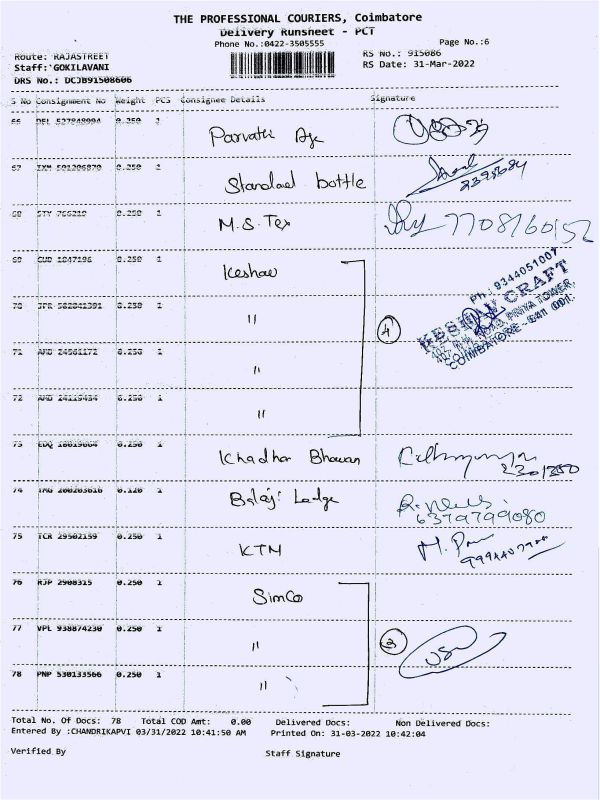 THE PROFESSIONAL COURIERS, Coimbatore
Delivery Runsheet - PCT
Phone No.:0422-3505555
Page No.:6
Route: RAJASTREET
RS No.: 915086
Staff: GOKILAVANI
RS Date: 31-Mar-2022
DRS No.: DCJB91508606
S No Consignment No Weight PCS Consignee Details Signature
66 DEL 0.250 1 Parvathi Age
67 0.250 Standard bottle
68 STY 0.250 1 M.S. Tex 7708160152
69 CUD 1847196 0.250 1 Keshav
Ph.: 9344051007
70 0.250 1 "
4
KESHAV CRAFT
PRIYA TOWER,
COIMBATORE - 641 001.
71 AMD 24561172 0.250 1 "
72 AMD 0.250 1 "
73 EDQ 0.250 1 Khadhar Bhavan
2301350
74 0.120 1 Balaji Lodge
6379799080
75 TCR 29502159 0.250 1 KTM
76 RJP 2908315 0.250 1 SimCo
77 VPL 938874230 0.250 1 "
3
78 PNP 530133566 0.250 1 "
Total No. Of Docs: 78 Total COD Amt: 0.00 Delivered Docs: Non Delivered Docs:
Entered By :CHANDRIKAPVI 03/31/2022 10:41:50 AM Printed On: 31-03-2022 10:42:04
Verified By Staff Signature